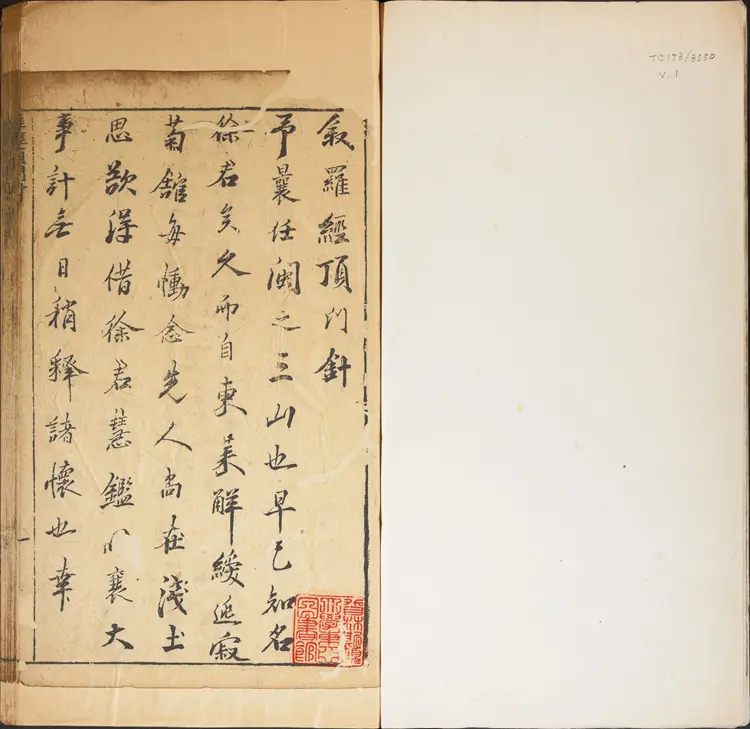 TC173/3550
v.1
叙羅經頂門針
予曩任閩之三山也早已知名
徐君矣久而自東萊解綬延寂
菊舘每慟念先人尚在淺土
思欲得借徐君慧鑑以襄大
事計無日稍釋諸懷也幸
普林斯頓
大學東亞
圖書館